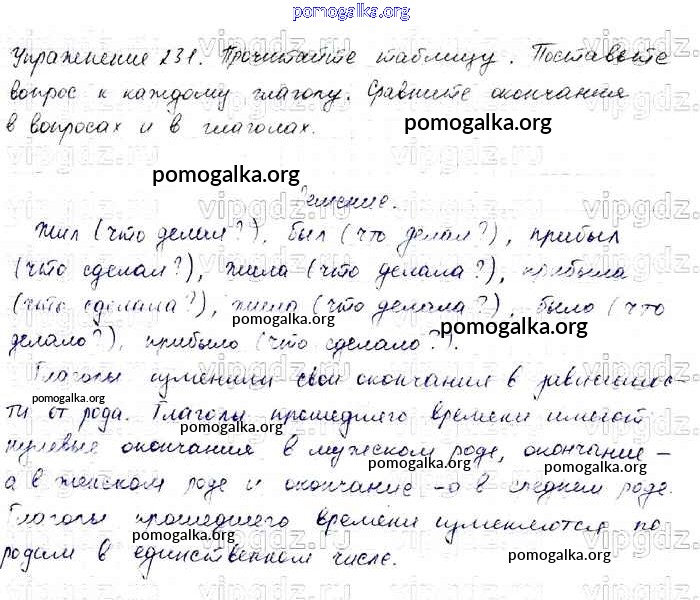 pomogalka.org
Упражнение 231. Прочитайте таблицу. Поставьте
вопрос к каждому глаголу. Сравните окончания
в вопросах и в глаголах.
pomogalka.org
pomogalka.org
Решение.
Жил (что делал?), был (что делал?), прибыл
(что сделал?), жила (что делала?), прибыла
(что сделала?), жила (что делала?), было (что
pomogalka.org
pomogalka.org
делало?), прибыло (что сделало?).
pomogalka.org
Глаголы изменили свои окончания в зависимос-
ти от рода. Глаголы прошедшего времени имеют
pomogalka.org
нулевые окончания в мужском роде, окончание –
pomogalka.org
pomogalka.org
а в женском роде и окончание -о в среднем роде.
Глаголы прошедшего времени изменяются по
pomogalka.org
родам в единственном числе.
pomogalka.org